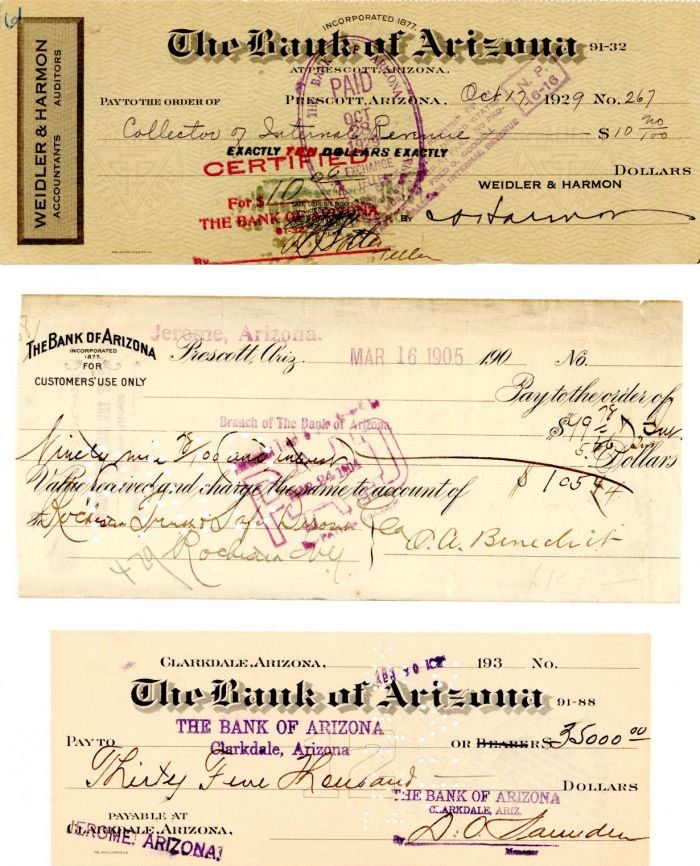 6d
INCORPORATED 1877.
The Bank of Arizona 91-32
AT PRESCOTT, ARIZONA.
PAY TO THE ORDER OF PRESCOTT, ARIZONA, Oct 17, 1929 No. 267
Collector of Internal Revenue $ 10 no/100
EXACTLY TEN DOLLARS EXACTLY
DOLLARS
WEIDLER & HARMON
ACCOUNTANTS AUDITORS
THE BANK OF ARIZONA
PAID
OCT
28
EXCHANGE
TELLER
N. P.
16-16
INTERNAL REVENUE
CERTIFIED
For $ 10 00
THE BANK OF ARIZONA
By Teller
WEIDLER & HARMON
BY Harmon
THE BANK OF ARIZONA
INCORPORATED
1877.
FOR
CUSTOMERS' USE ONLY
Jerome, Arizona.
Prescott, Ariz. MAR 16 1905 190 No.
Pay to the order of
Branch of The Bank of Arizona
PAID
$ 99 78 Int.
Ninety nine 78/100 and interest Dollars
Value received and charge the same to account of $ 105 44
Co O. A. Benedict
Rochester NY
479
CLARKDALE, ARIZONA, 193 No.
The Bank of Arizona 91-88
THE BANK OF ARIZONA
Clarkdale, Arizona
PAY TO OR BEARER $ 35000 00
Thirty Five Thousand DOLLARS
THE BANK OF ARIZONA
CLARKDALE, ARIZ.
PAYABLE AT
CLARKDALE, ARIZONA,
JEROME, ARIZONA,
By D. O. Saunders
Manager